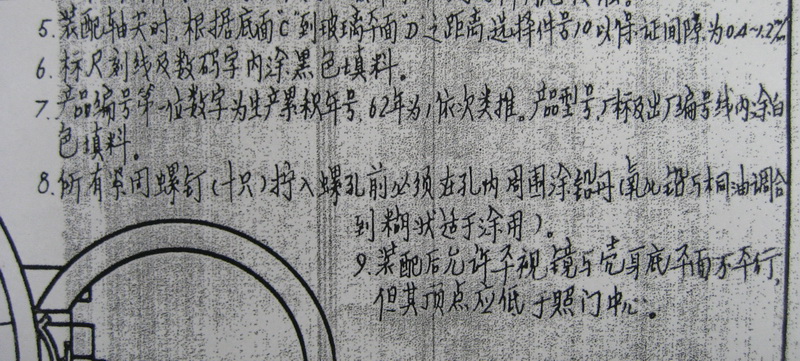 5. 装配轴尖时，根据底面"C"到玻璃平面"D"之距离选择件号10以保证间隙为0.4~1.2
6. 标尺刻线及数码字内涂黑色填料。
7. 产品编号第一位数字为生产累积年号，62年为1依次类推。产品型号，厂标及出厂编号线内涂白
色填料。
8. 所有紧固螺钉（十只）拧入螺孔前必须在孔内周围涂铅丹（氧化铅与桐油调合
到糊状适于涂用）。
9. 装配后允许平视镜与壳身底平面不平行，
但其顶点应低于照门中心。